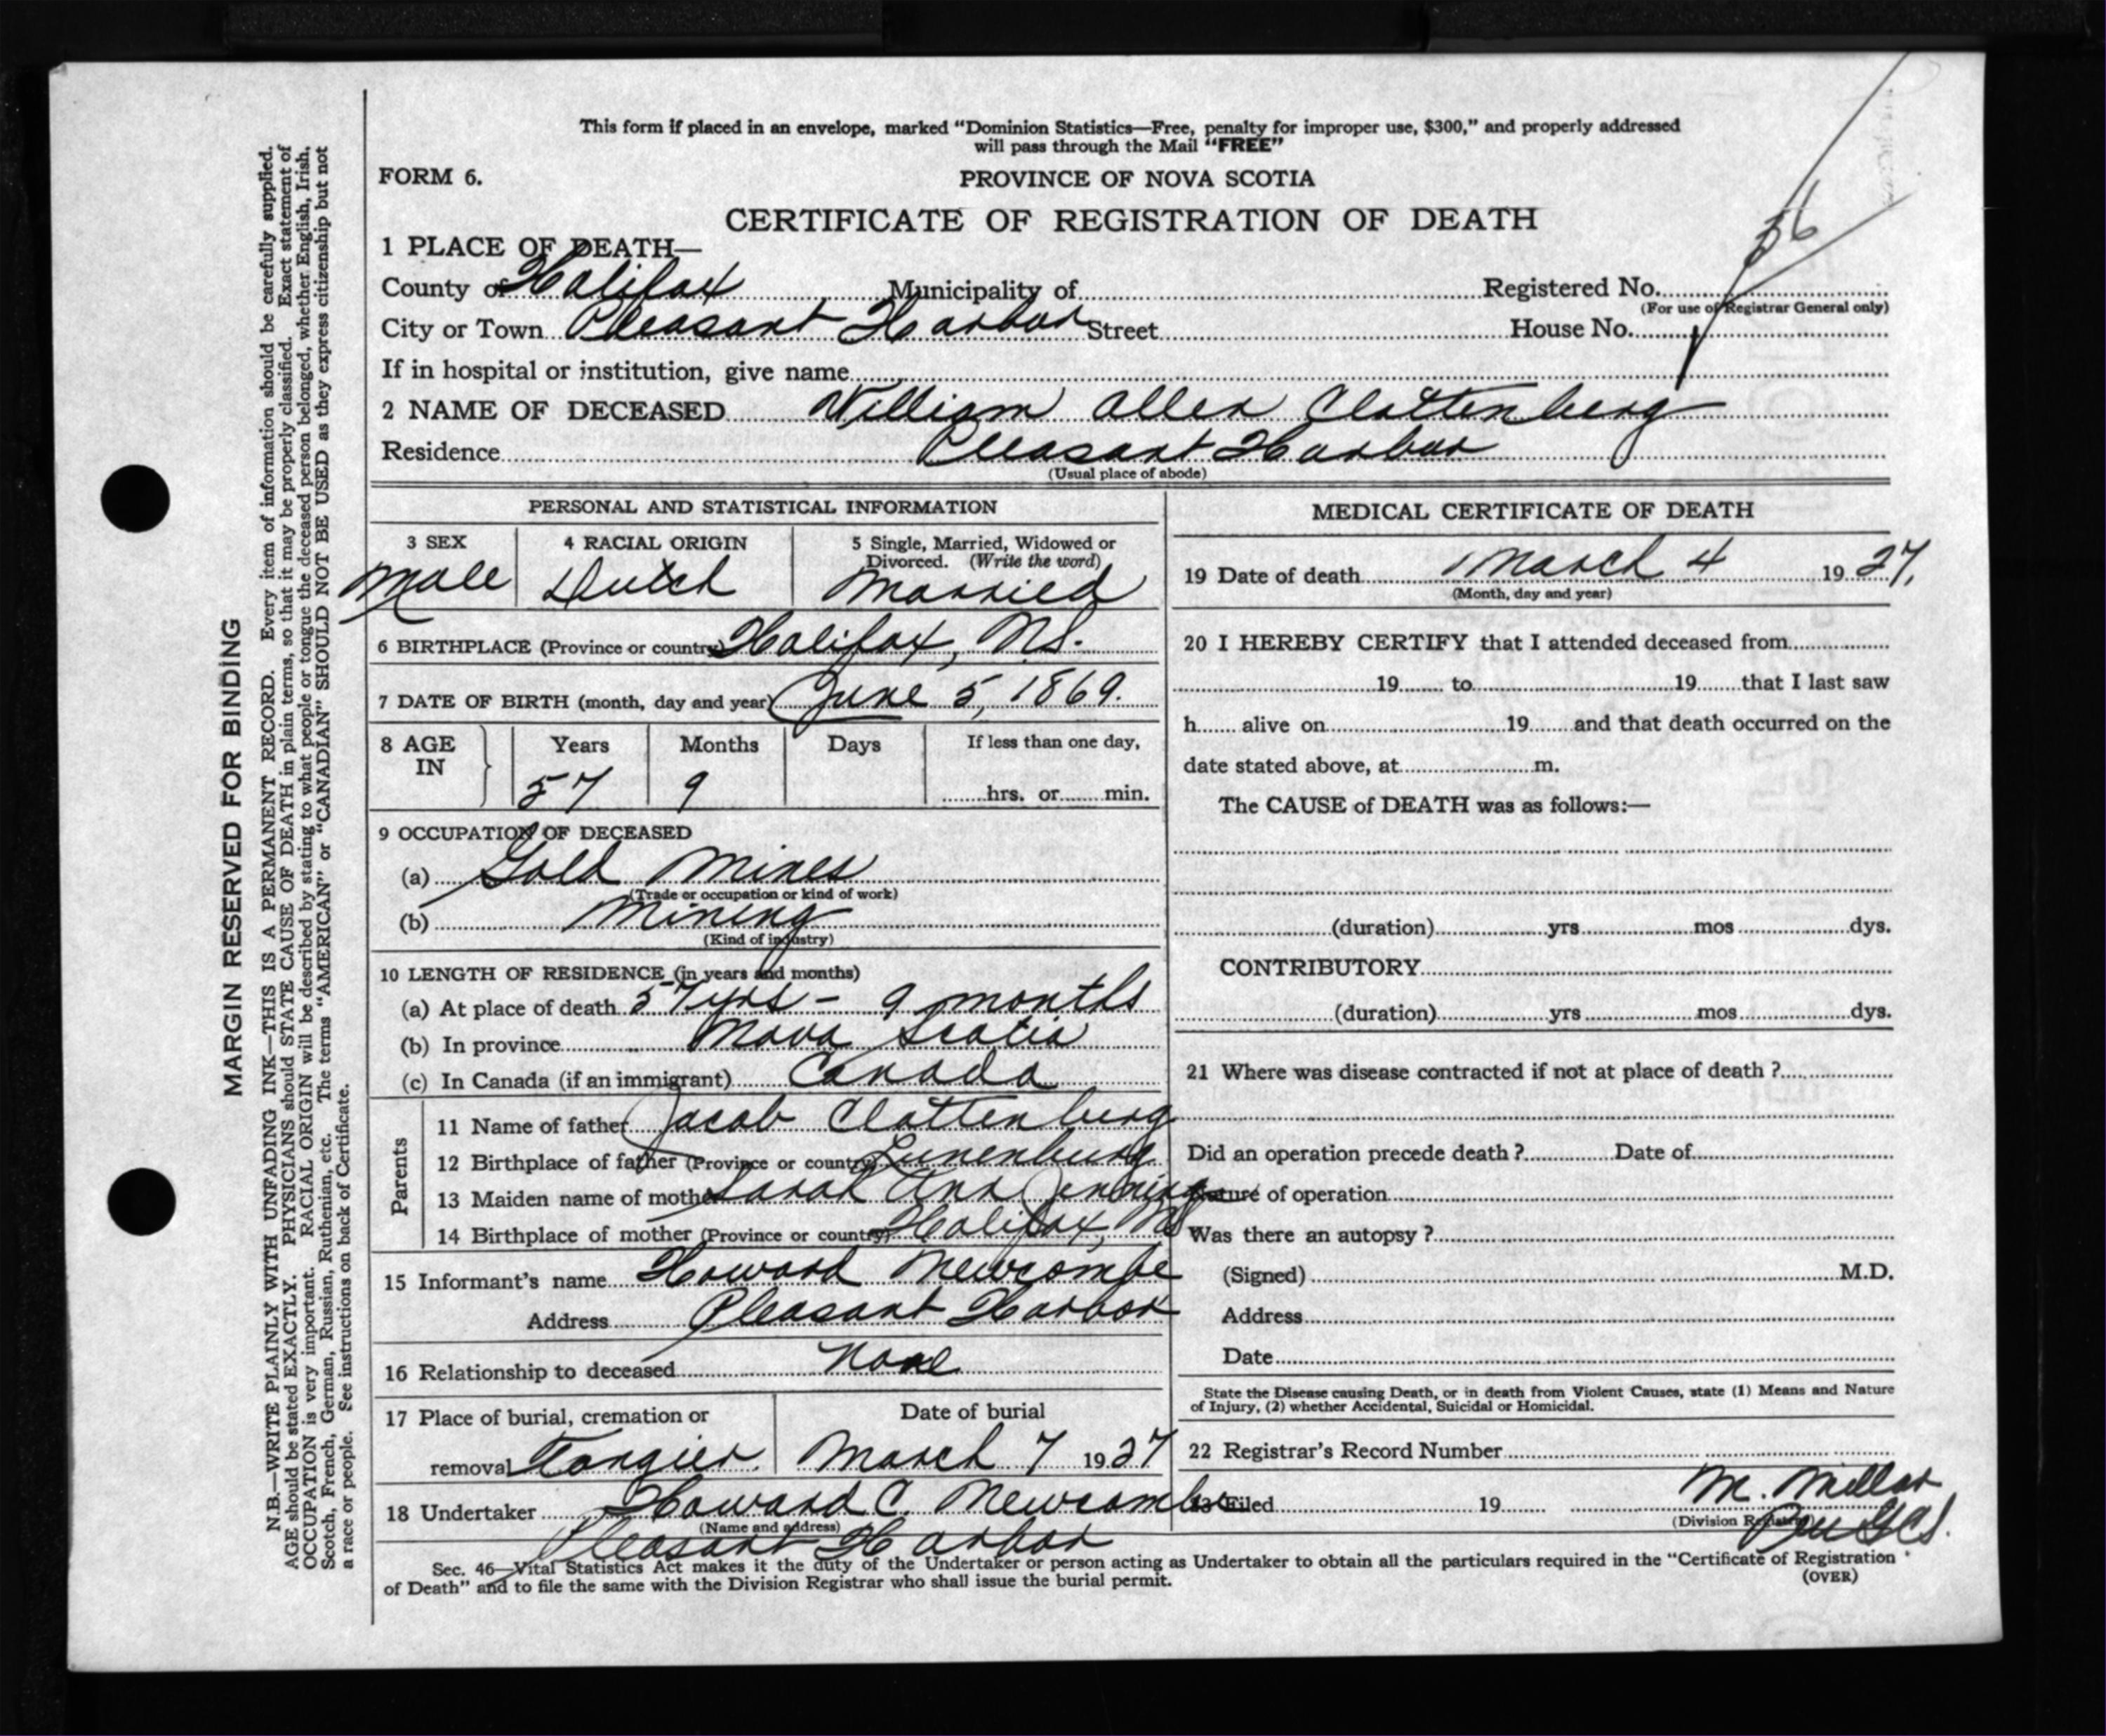 This form if placed in an envelope, marked "Dominion Statistics—Free, penalty for improper use, $300," and properly addressed
will pass through the Mail "FREE"
FORM 6.
PROVINCE OF NOVA SCOTIA
CERTIFICATE OF REGISTRATION OF DEATH
56
1 PLACE OF DEATH—
County of Halifax Municipality of Registered No.
(For use of Registrar General only)
City or Town Pleasant Harbor Street House No.
If in hospital or institution, give name
2 NAME OF DECEASED William Allen Clattenberg
Residence Pleasant Harbor
(Usual place of abode)
PERSONAL AND STATISTICAL INFORMATION
3 SEX 4 RACIAL ORIGIN 5 Single, Married, Widowed or
Divorced. (Write the word)
Male Dutch Married
6 BIRTHPLACE (Province or country) Halifax, N.S.
7 DATE OF BIRTH (month, day and year) June 5, 1869.
8 AGE IN Years Months Days If less than one day,
57 9 hrs. or min.
9 OCCUPATION OF DECEASED
(a) Gold Mines
(Trade or occupation or kind of work)
(b) Mining
(Kind of industry)
10 LENGTH OF RESIDENCE (in years and months)
(a) At place of death 57 yrs - 9 months
(b) In province Nova Scotia
(c) In Canada (if an immigrant) Canada
Parents
11 Name of father Jacob Clattenburg
12 Birthplace of father (Province or country) Lunenburg
13 Maiden name of mother Sarah Ann Jennings
14 Birthplace of mother (Province or country) Halifax, NS
15 Informant's name Howard Newcombe
Address Pleasant Harbor
16 Relationship to deceased None
17 Place of burial, cremation or Date of burial
removal Tangier. March 7 1927
18 Undertaker Howard C. Newcombe
(Name and address)
Pleasant Harbor
MEDICAL CERTIFICATE OF DEATH
19 Date of death March 4 1927.
(Month, day and year)
20 I HEREBY CERTIFY that I attended deceased from
19 to 19 that I last saw
h alive on 19 and that death occurred on the
date stated above, at m.
The CAUSE of DEATH was as follows:—
(duration) yrs mos dys.
CONTRIBUTORY
(duration) yrs mos dys.
21 Where was disease contracted if not at place of death ?
Did an operation precede death ? Date of
Nature of operation
Was there an autopsy ?
(Signed) M.D.
Address
Date
State the Disease causing Death, or in death from Violent Causes, state (1) Means and Nature
of Injury, (2) whether Accidental, Suicidal or Homicidal.
22 Registrar's Record Number
23 Filed 19 M. Millar
(Division Registrar)
Sec. 46—Vital Statistics Act makes it the duty of the Undertaker or person acting as Undertaker to obtain all the particulars required in the "Certificate of Registration
of Death" and to file the same with the Division Registrar who shall issue the burial permit.
(OVER)
MARGIN RESERVED FOR BINDING
N.B.—WRITE PLAINLY WITH UNFADING INK—THIS IS A PERMANENT RECORD. Every item of information should be carefully supplied.
AGE should be stated EXACTLY. PHYSICIANS should STATE CAUSE OF DEATH in plain terms, so that it may be properly classified. Exact statement of
OCCUPATION is very important. RACIAL ORIGIN will be described by stating to what people or tongue the deceased person belonged, whether English, Irish,
Scotch, French, German, Russian, Ruthenian, etc. The terms "AMERICAN" or "CANADIAN" SHOULD NOT BE USED as they express citizenship but not
a race or people. See instructions on back of Certificate.